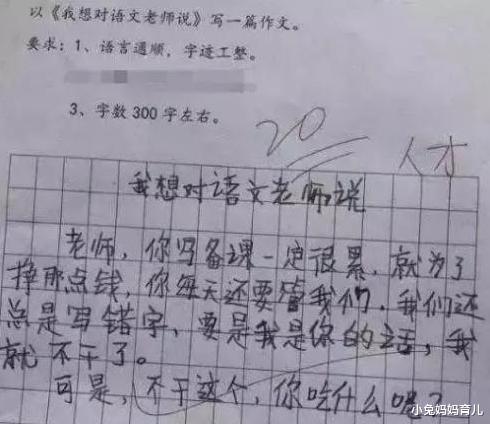 以《我想对语文老师说》写一篇作文。
要求：1、语言通顺，字迹工整。
3、字数300字左右。
20
人才
我想对语文老师说
老师，你写备课一定很累，就为了
挣那点钱，你每天还要管我们，我们还
总是写错字，要是我是你的话，我
就不干了。
可是，不干这个，你吃什么呢？
小兔妈妈育儿